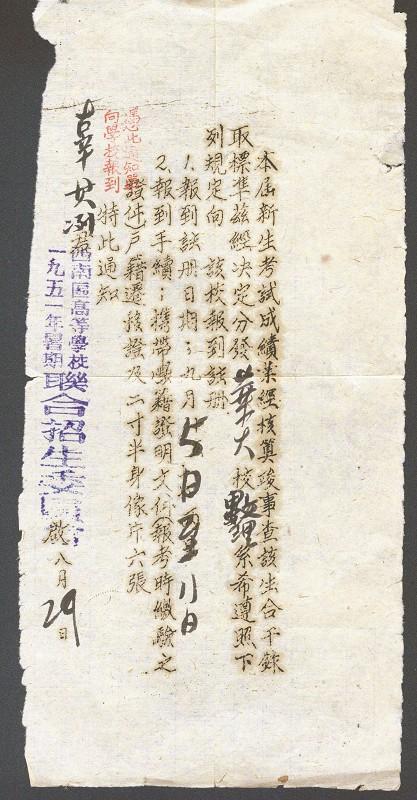 本屆新生考試成績業經核算竣事查該生合于錄
取標準茲經決定分發華大校數理系希遵照下
列規定向 該校報到註冊
1.報到註冊日期:九月5日至11日
2.報到手續:携帶學籍證明文件(報考時繳驗之
證件)戶籍遷移證及二寸半身像片六張
特此通知
憑此通知單
向學校報到
君
西南區高等學校
一九五一年暑期
聯合招生委員會
啟八月29日